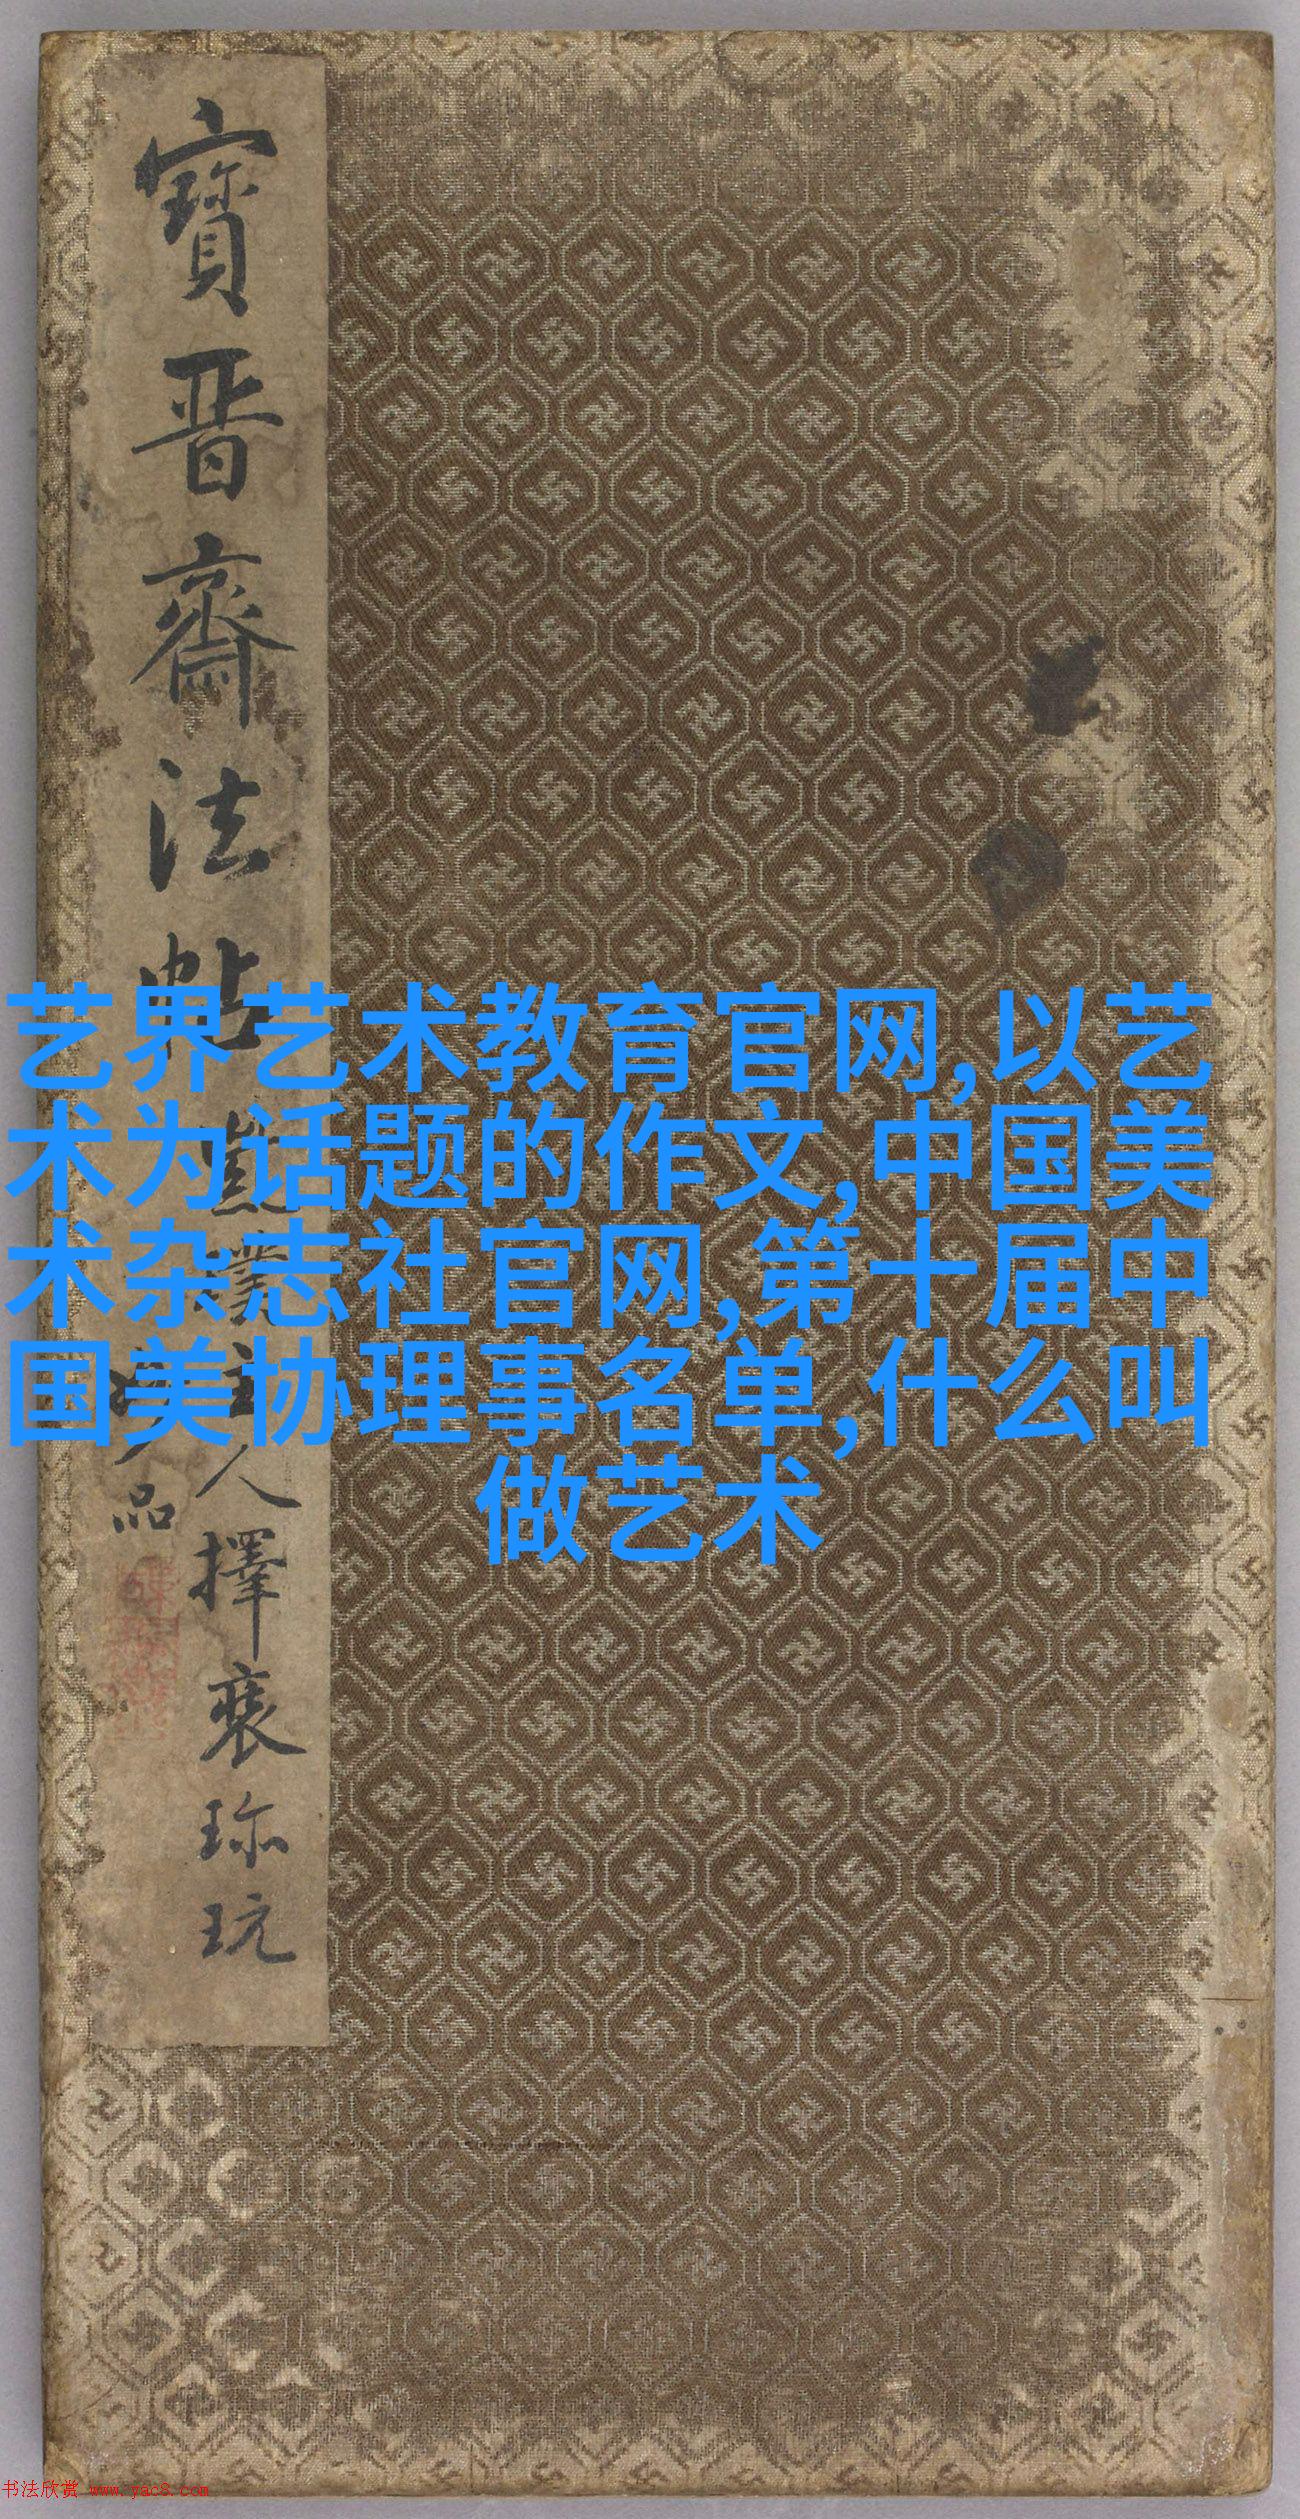 寶晉齋法帖
人擇裒珎玩
品
艺界艺术教育官网,以艺
术为话题的作文,中国美
术杂志社官网,第十届中
国美协理事名单,什么叫
做艺术
书法欣赏 www.yac8.com